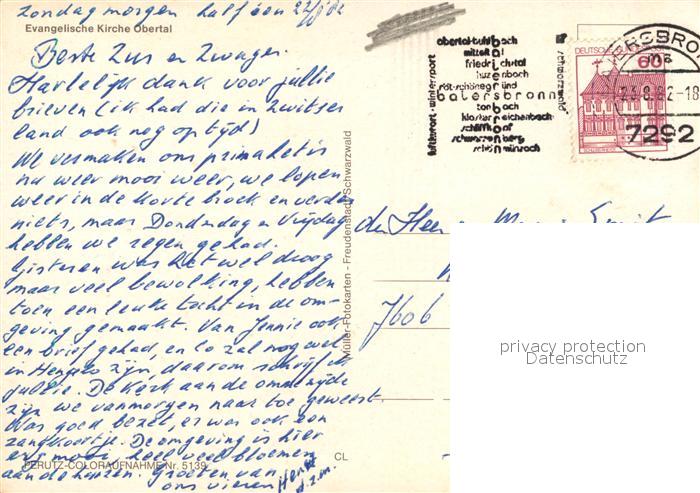 zondag morgen half een 22/8 '82
Evangelische Kirche Obertal
Beste Zus en Zwager.
Hartelijk dank voor jullie
brieven (ik had die in Zwitser
land ook nog op tijd)
We vermaken ons prima het is
nu weer mooi weer, we lopen
weer in de korte broek en verder
niets, maar Donderdag en Vrijdag
hebben we regen gehad.
Gisteren was het wel droog
maar veel bewolking, hebben
toen een leuke tocht in de om-
geving gemaakt. Van Jennie ook
een brief gehad, en zo zal nog wel
in Hengelo zijn, daarom schrijf ik
jullie. De Kerk aan de ommezijde
zijn we vanmorgen naar toe geweest.
Was goed bezet, er was ook een
zangkoortje. De omgeving is hier
erg mooi, heel veel bloemen
aan de huizen. Groeten van
ons vieren Henk
d.z.m.
PERUTZ-COLORAUFNAHME Nr. 5139
CL
Müller-Fotokarten - Freudenstadt/Schwarzwald
obertal-buhlbach
mitteltal
friedrichstal
huzenbach
röt-schönegründ
baiersbronn
tonbach
klosterreichenbach
schwarzenberg
schönmünzach
luftkurort·wintersport
schwarzwald
DEUTSCHE
60
BAIERSBRONN
23.8.82-18
7292
den Heer en
7606
privacy protection
Datenschutz